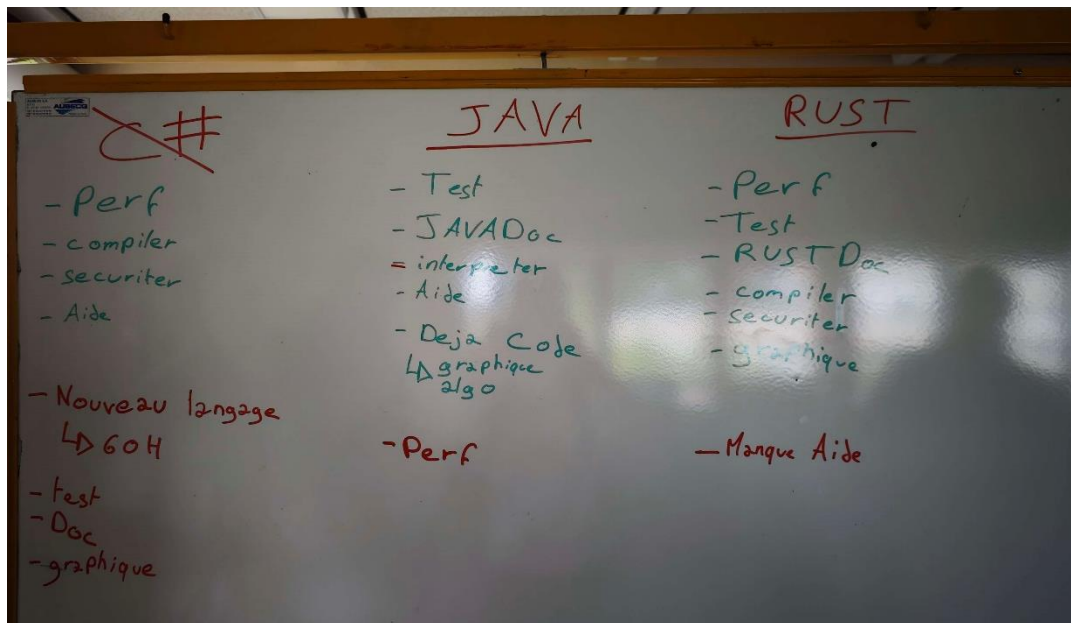 C#
- Perf
- compiler
- securiter
- Aide
- Nouveau langage
↳ 60H
- test
- Doc
- graphique
JAVA
- Test
- JAVADoc
- interpreter
- Aide
- Deja Code
↳ graphique
algo
- Perf
RUST
- Perf
- Test
- RUSTDoc
- compiler
- securiter
- graphique
- Manque Aide